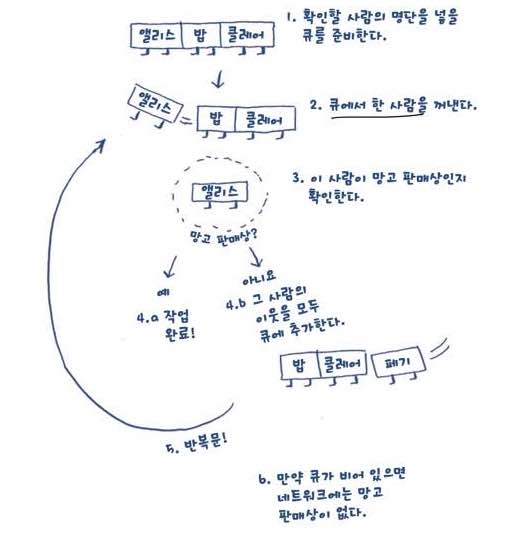 앨리스 밥 클레어
1. 확인할 사람의 명단을 넣을
큐를 준비한다.
앨리스 밥 클레어
2. 큐에서 한 사람을 꺼낸다.
앨리스
3. 이 사람이 망고 판매상인지
확인한다.
망고 판매상?
예
4.a 작업
완료!
아니요
4.b 그 사람의
이웃을 모두
큐에 추가한다.
밥 클레어 페기
5. 반복문!
6. 만약 큐가 비어 있으면
네트워크에는 망고
판매상이 없다.